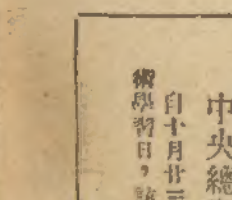 中央總
自十月廿三
術學習日，該